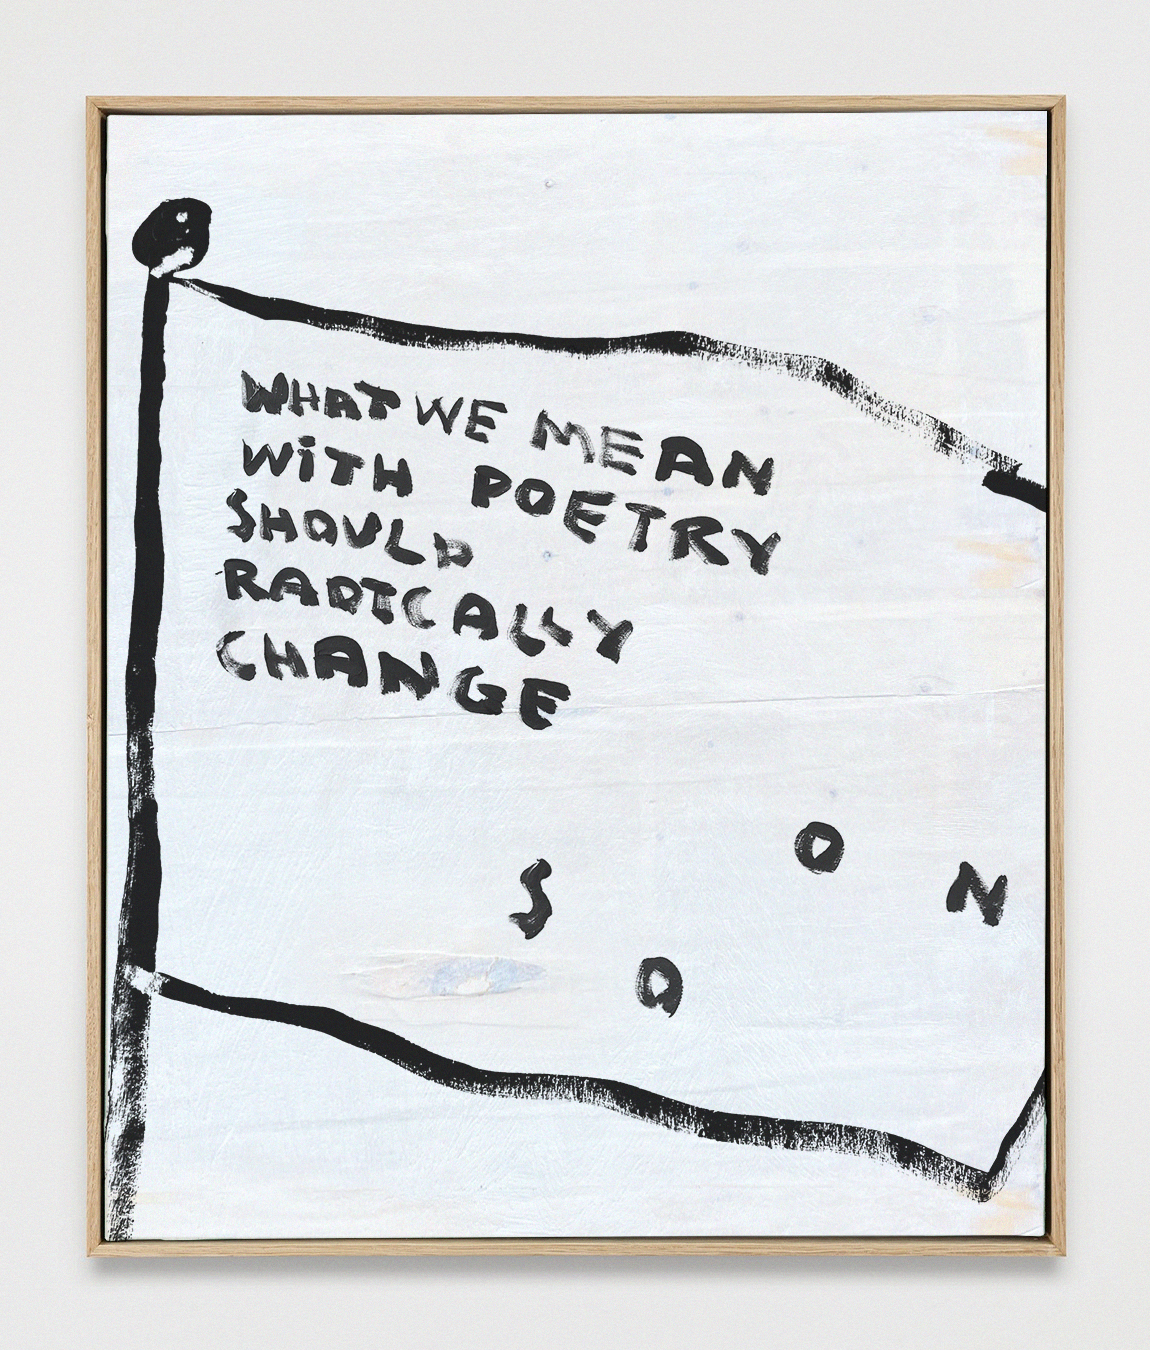 WHAT WE MEAN
WiTH POETRY
SHOULD
RADICALLY
CHANGE
S O O N